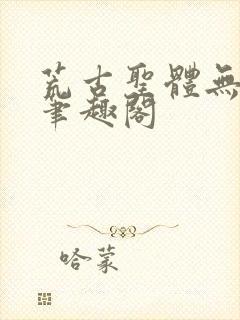 荒古聖體無
筆趣閣
哈蒙